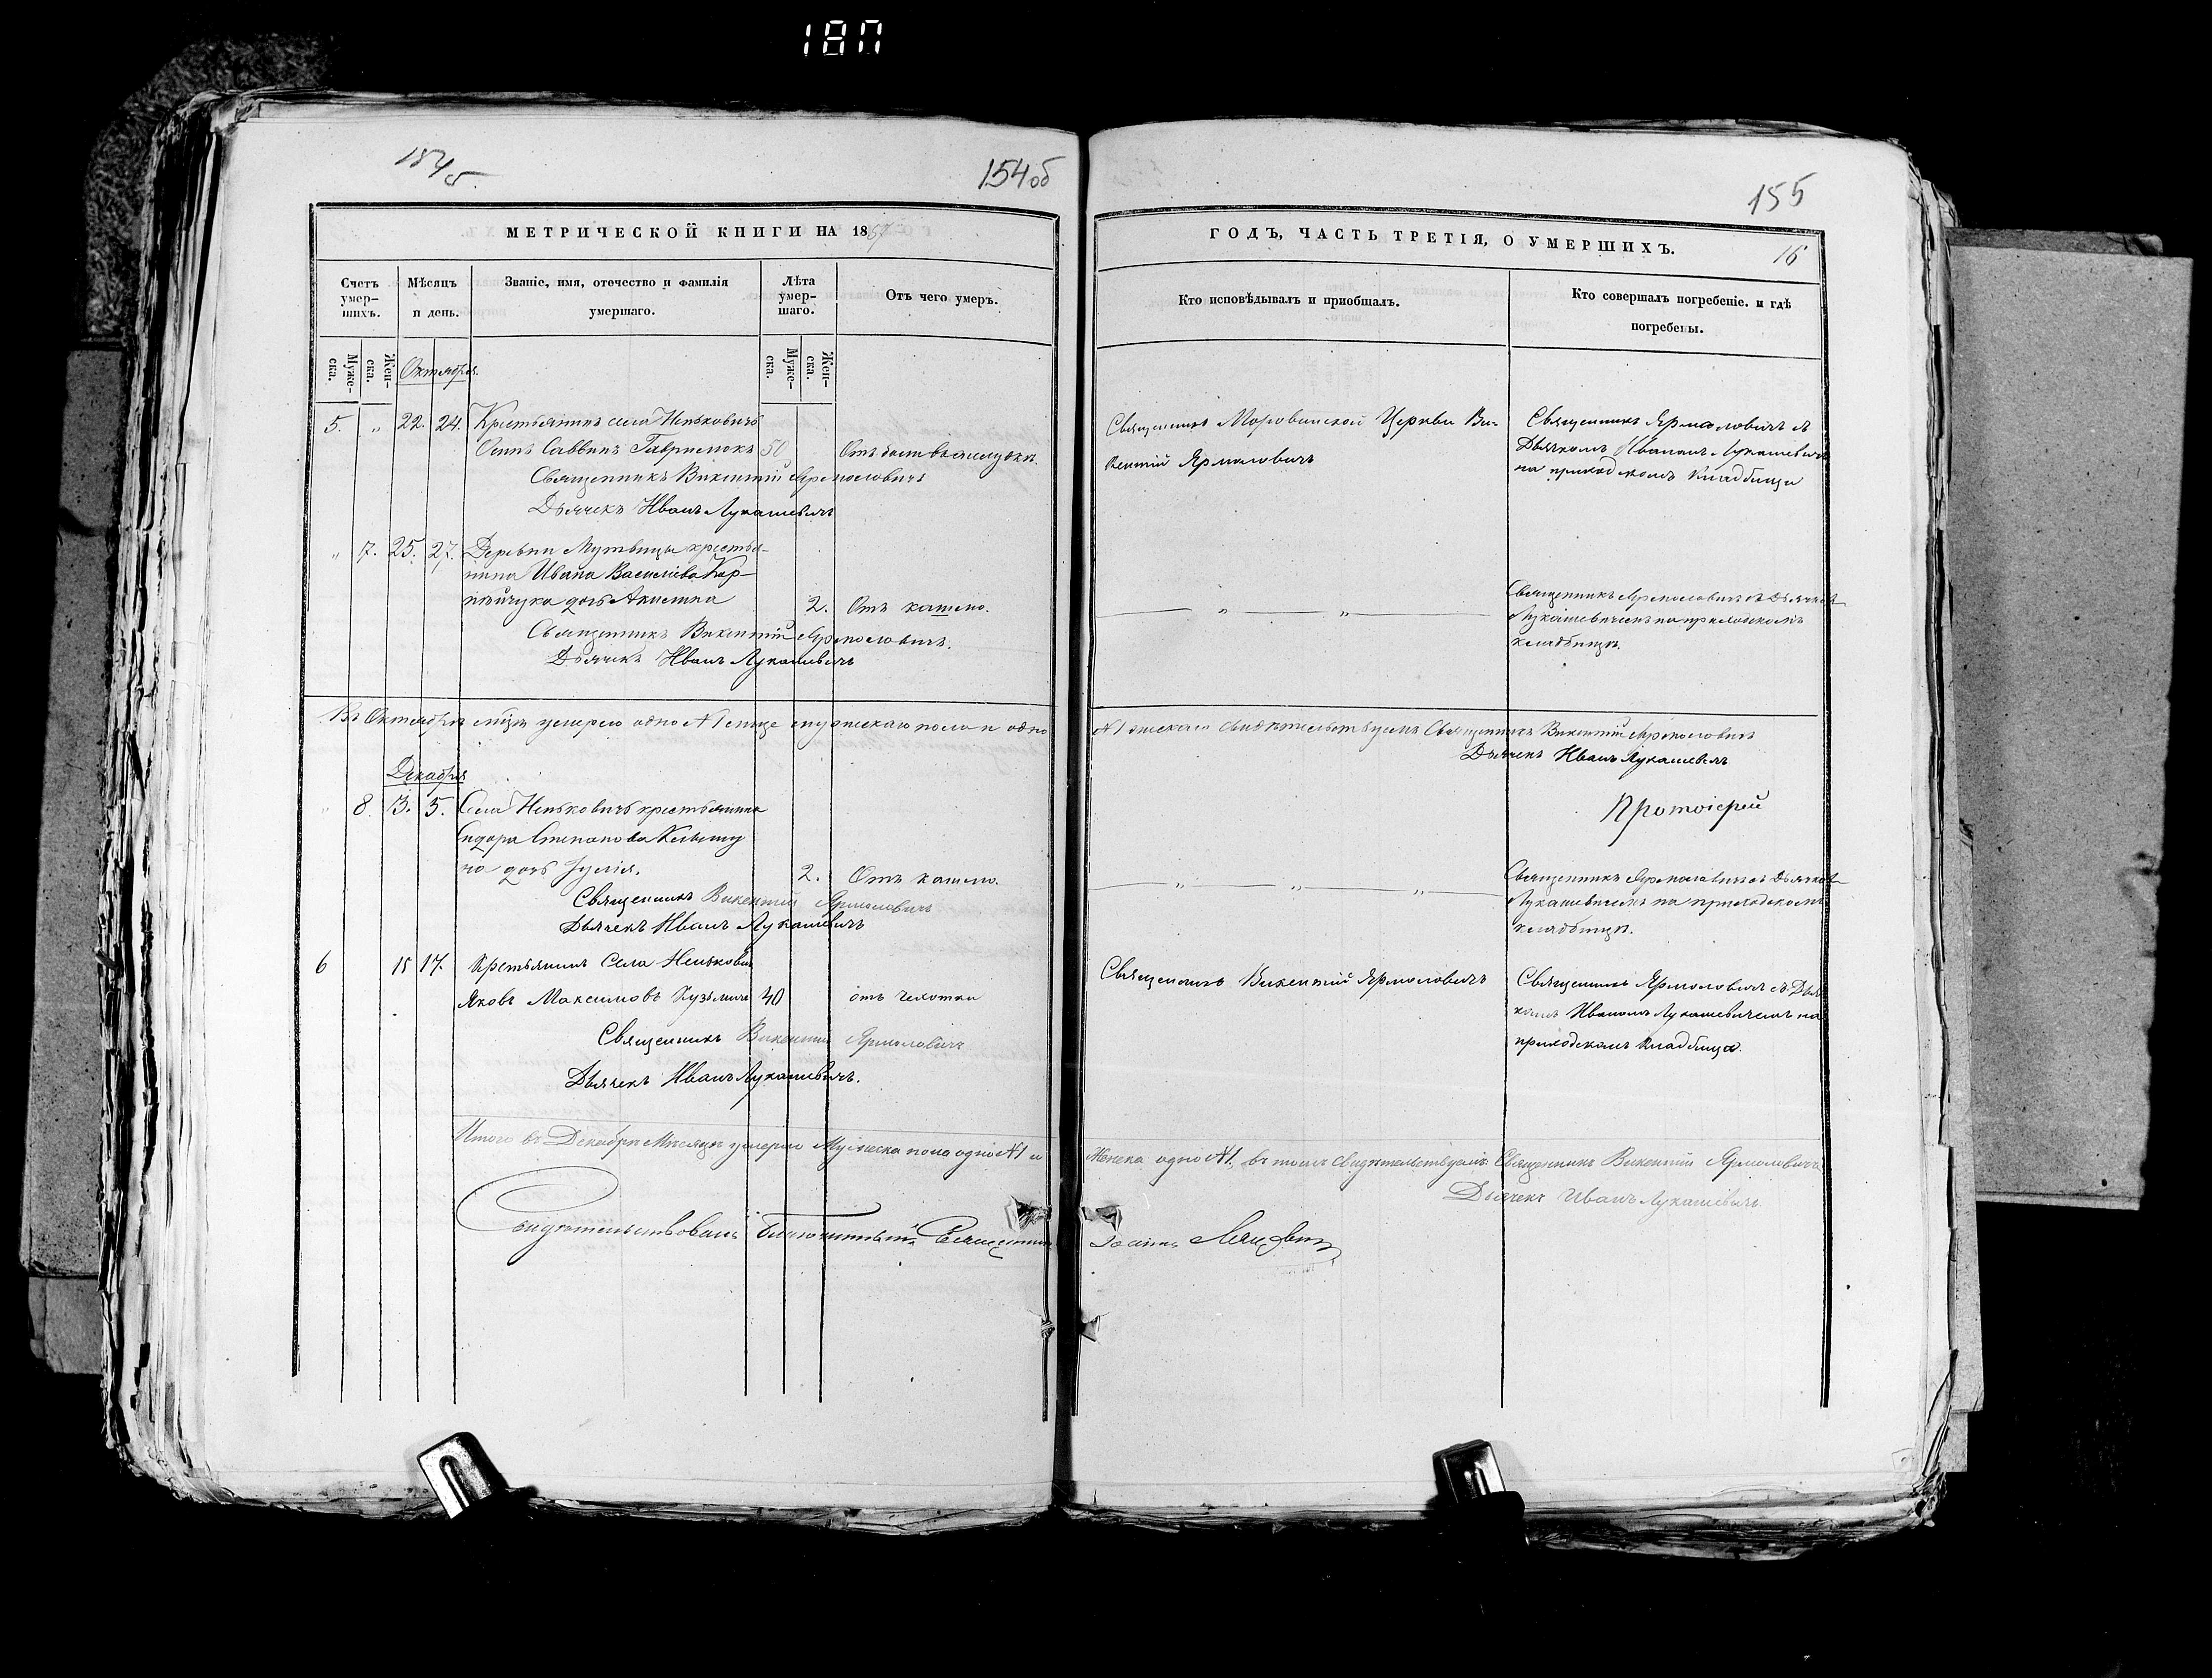 180
154об
155
МЕТРИЧЕСКОЙ КНИГИ НА 1857
ГОДЪ, ЧАСТЬ ТРЕТІЯ, О УМЕРШИХЪ.
16
Счетъ умер-шихъ.
Мѣсяцъ и день.
Званіе, имя, отечество и фамилія умершаго.
Лѣта умер-шаго.
Отъ чего умеръ.
Кто исповѣдывалъ и пріобщалъ.
Кто совершалъ погребеніе. и гдѣ погребены.
Муже-ска.
Жен-ска.
Октября.
Муже-ска.
Жен-ска.
5. " 22. 24. Крестьянинъ села Неньковичъ
Осипъ Саввинъ Гаврилюкъ 50
Священникъ Викентій Ярмоловичъ
Дьячекъ Иванъ Лукашевичъ
Священникъ Моровинской Церкви Ви-
кентій Ярмоловичъ
Священникъ Ярмоловичъ съ
Дьячкомъ Иваномъ Лукашевичемъ
на приходскомъ кладбищѣ
" 7. 25. 27. Деревни Мутвицы крестья-
нина Ивана Васильева Кар-
пѣйчука дочь Акилина 2. Отъ кашлю.
Священникъ Викентій Ярмоловичъ.
Дьячекъ Иванъ Лукашевичъ
" "
Священникъ Ярмоловичъ съ Дьячкомъ
Лукашевичемъ на приходскомъ
кладбищѣ.
Въ Октябрѣ мѣсяцѣ умерло одно №1 лице мужескаго пола и одно
№1 женскаго свидѣтельствуемъ Священникъ Викентій Ярмоловичъ
Дьячекъ Иванъ Лукашевичъ
Декабря
" 8. 3. 5. Села Неньковичъ крестьянина
Сидора Степанова
на дочь Іулія. 2. Отъ кашлю.
Священникъ Викентій Ярмоловичъ
Дьячекъ Иванъ Лукашевичъ
Протоіерей
" " "
Священникъ Ярмоловичъ съ Дьячкомъ
Лукашевичемъ на приходскомъ
кладбищѣ.
6 15 17. Крестьянинъ Села Неньковичъ
Яковъ Максимовъ Кузьмичъ 40 отъ чехотки
Священникъ Викентій Ярмоловичъ
Дьячекъ Иванъ Лукашевичъ.
Священникъ Викентій Ярмоловичъ
Священникъ Ярмоловичъ съ Дьяч
комъ Иваномъ Лукашевичемъ на
приходскомъ кладбищѣ.
Итого въ Декабрѣ Мѣсяцѣ умерло Мужеска пола одно №1 и
Женска одно №1. въ томъ свидѣтельствуемъ Священникъ Викентій Ярмоловичъ
Дьячекъ Иванъ Лукашевичъ.
Свидѣтельствовалъ Благочинный Священникъ
Іоаннъ